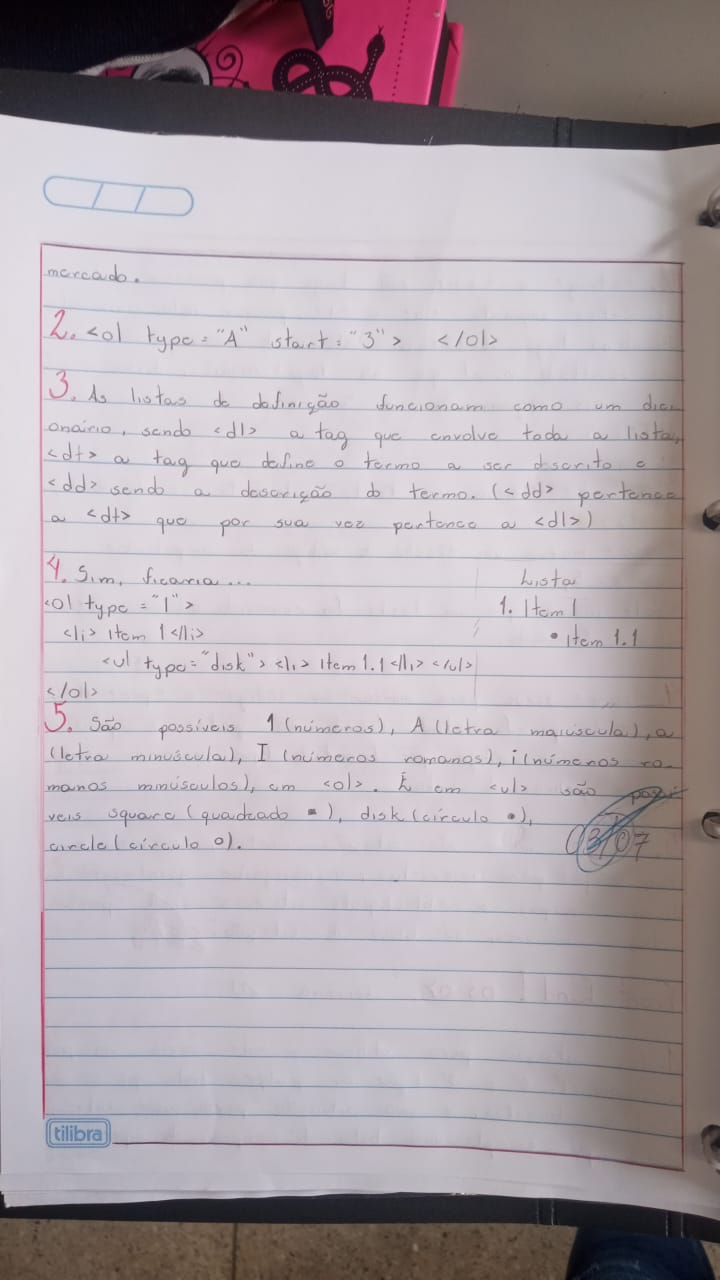 mercado.
2. <ol type="A" start="3"> </ol>
3. As listas de definição funcionam como um dici
onário, sendo <dl> a tag que envolve toda a lista,
<dt> a tag que define o termo a ser dscrito e
<dd> sendo a descrição do termo. (<dd> pertence
a <dt> que por sua vez pertence a <dl>)
4. Sim, ficaria...
<ol type="1">
<li> Item 1 </li>
<ul type="disk"> <li> Item 1.1 </li> </ul>
</ol>
Lista
1. Item 1
• Item 1.1
5. São possíveis 1 (números), A (letra maiúscula), a
(letra minúscula), I (números romanos), i (números ro-
manos minúsculos), em <ol>. E em <ul> são possí
veis square (quadrado ▪), disk (círculo •),
circle (círculo o).
03/07
tilibra